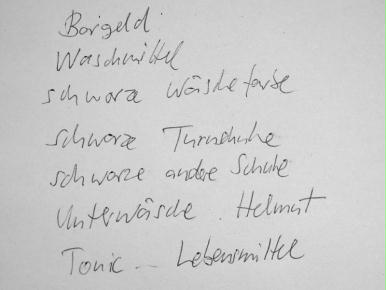 Bargeld
Waschmittel
schwarze Wäschefarbe
schwarze Turnschuhe
schwarze andere Schuhe
Unterwäsche . Helmut
Tonic – Lebensmittel